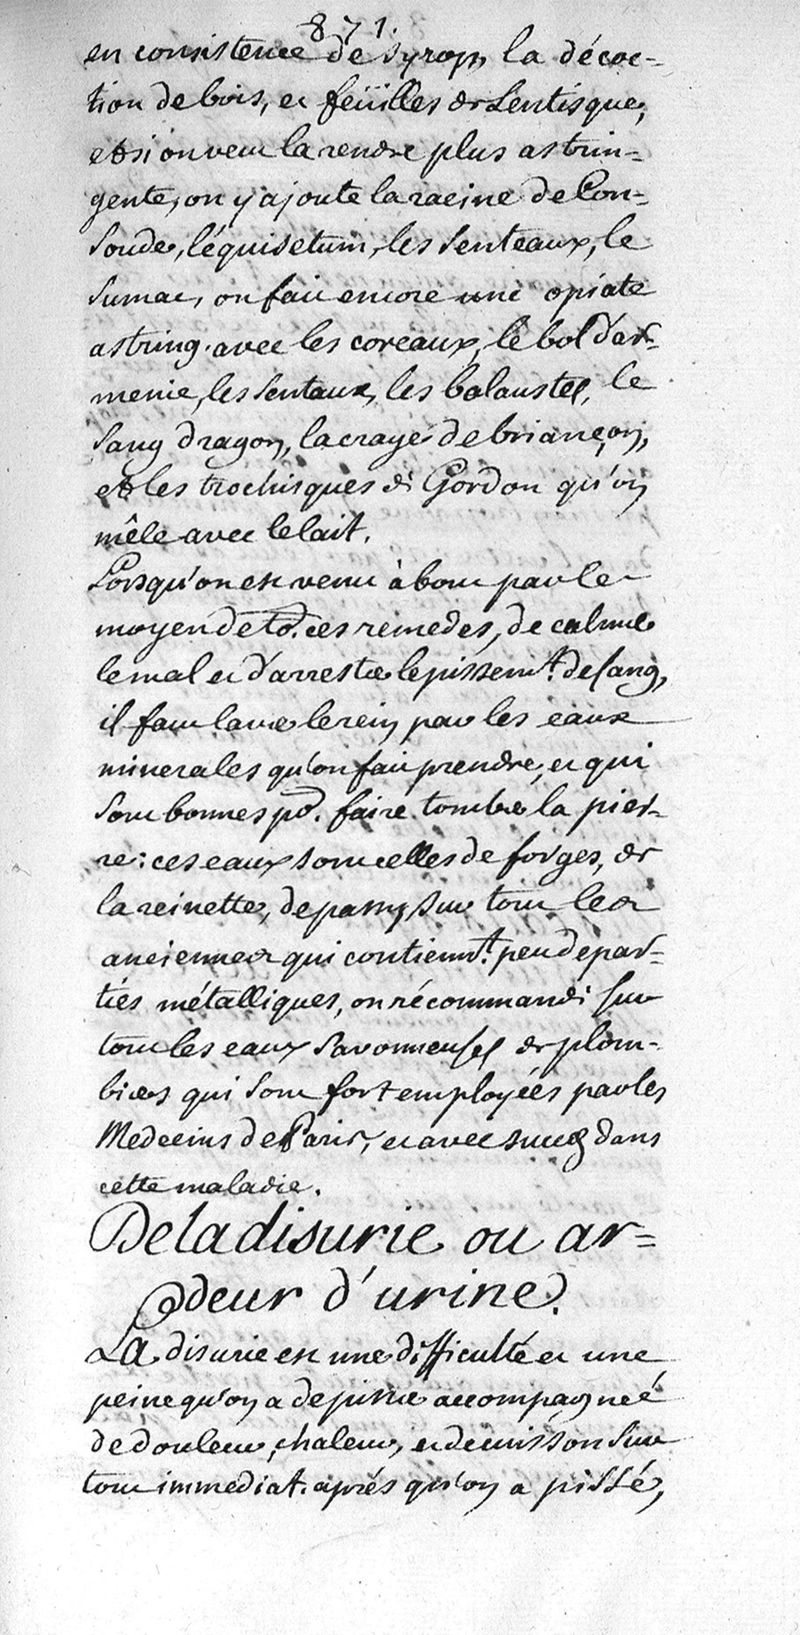 871.
en consistence de syrop, la décoc-
tion de bois, et feüilles de Lentisque,
et si on veut la rendre plus astrin-
gente, on y ajoute la racine de Con-
soude, l'équisetum, les senteaux, le
sumac, on fait encore une opiate
astring. avec les coreaux, le bol d'ar-
menie, les sentaux, les balaustes, le
sang dragon, la craye de briançon,
et les trochisques de Gordon qu'on
mêle avec le lait.
Lorsqu'on est venu à bout par le
moyen de tts. ces remedes, de calmer
le mal et d'arrester le pissemt. de sang,
il faut laver le rein par les eaux
minerales qu'on fait prendre, et qui
sont bonnes pr. faire tomber la pier-
re: ces eaux sont celles de forges, de
la reinette, de passy, sur tout les
anciennes qui contiennt. peu de par-
ties métalliques, on récommande sur
tout les eaux savonneuses de plom-
bieres qui sont fort employées par les
Medecins de Paris, et avec succes dans
cette maladie.
De la disurie ou ar=
deur d'urine.
La disurie est une difficulté et une
peine qu'on a de pisser accompagneé
de douleur, chaleur, et de cuisson sur
tout immediat. aprés qu'on a pissé,